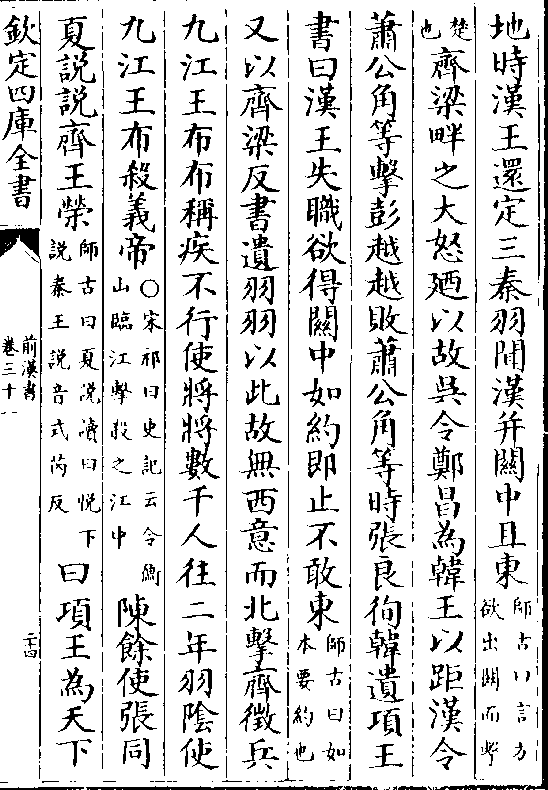 地時漢王還定三秦羽聞漢并關中且東師古曰言方欲出關而擊
楚也齊梁畔之大怒廼以故吳令鄭昌為韓王以距漢令
蕭公角等擊彭越越敗蕭公角等時張良徇韓遺項王
書曰漢王失職欲得關中如約即止不敢東師古曰如本要約也
又以齊梁反書遺羽羽以此故無西意而北擊齊徵兵
九江王布布稱疾不行使將將數千人往二年羽陰使
九江王布殺義帝○宋祁曰史記云令衡山臨江擊殺之江中陳餘使張同
夏説説齊王榮師古曰夏説讀曰悅下説秦王説音式芮反曰項王為天下
欽定四庫全書
前漢書
卷三十一
二十四